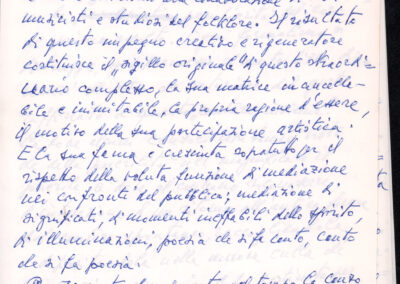 musicisti e studiosi del folklore. Il risultato
di questo impegno creativo e rigeneratore
costituisce il "sigillo originale" di questo straordi-
nario complesso, la sua matrice incancella-
bile e inimitabile, la propria ragione d'essere,
il motivo della sua partecipazione artistica.
E la sua fama è cresciuta soprattutto per il
rispetto della voluta funzione di mediazione
nei confronti del pubblico; mediazione di
significati, di momenti ineffabili dello spirito,
di illuminazioni, poesia che si fa canto, canto
che si fa poesia.